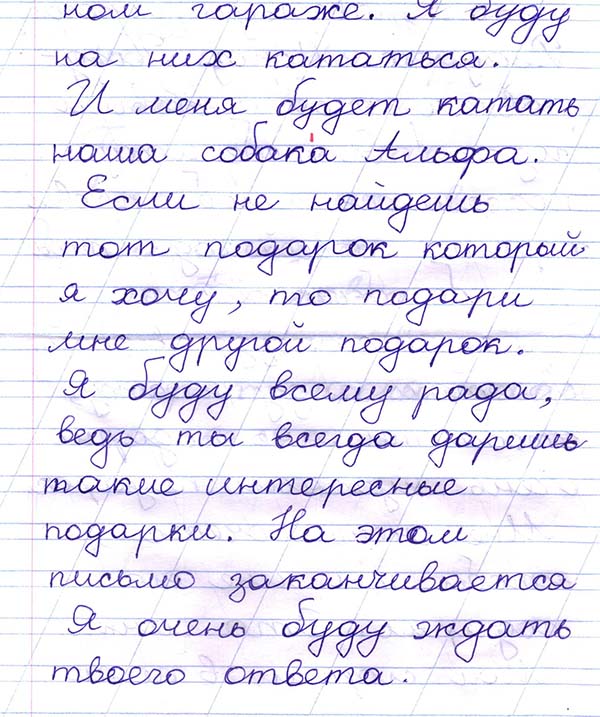 ном гараже. Я буду
на них кататься.
И меня будет катать
наша собака Альфа.
Если не найдешь
тот подарок который
я хочу, то подари
мне другой подарок.
Я буду всему рада,
ведь ты всегда даришь
такие интересные
подарки. На этом
письмо заканчивается
Я очень буду ждать
твоего ответа.